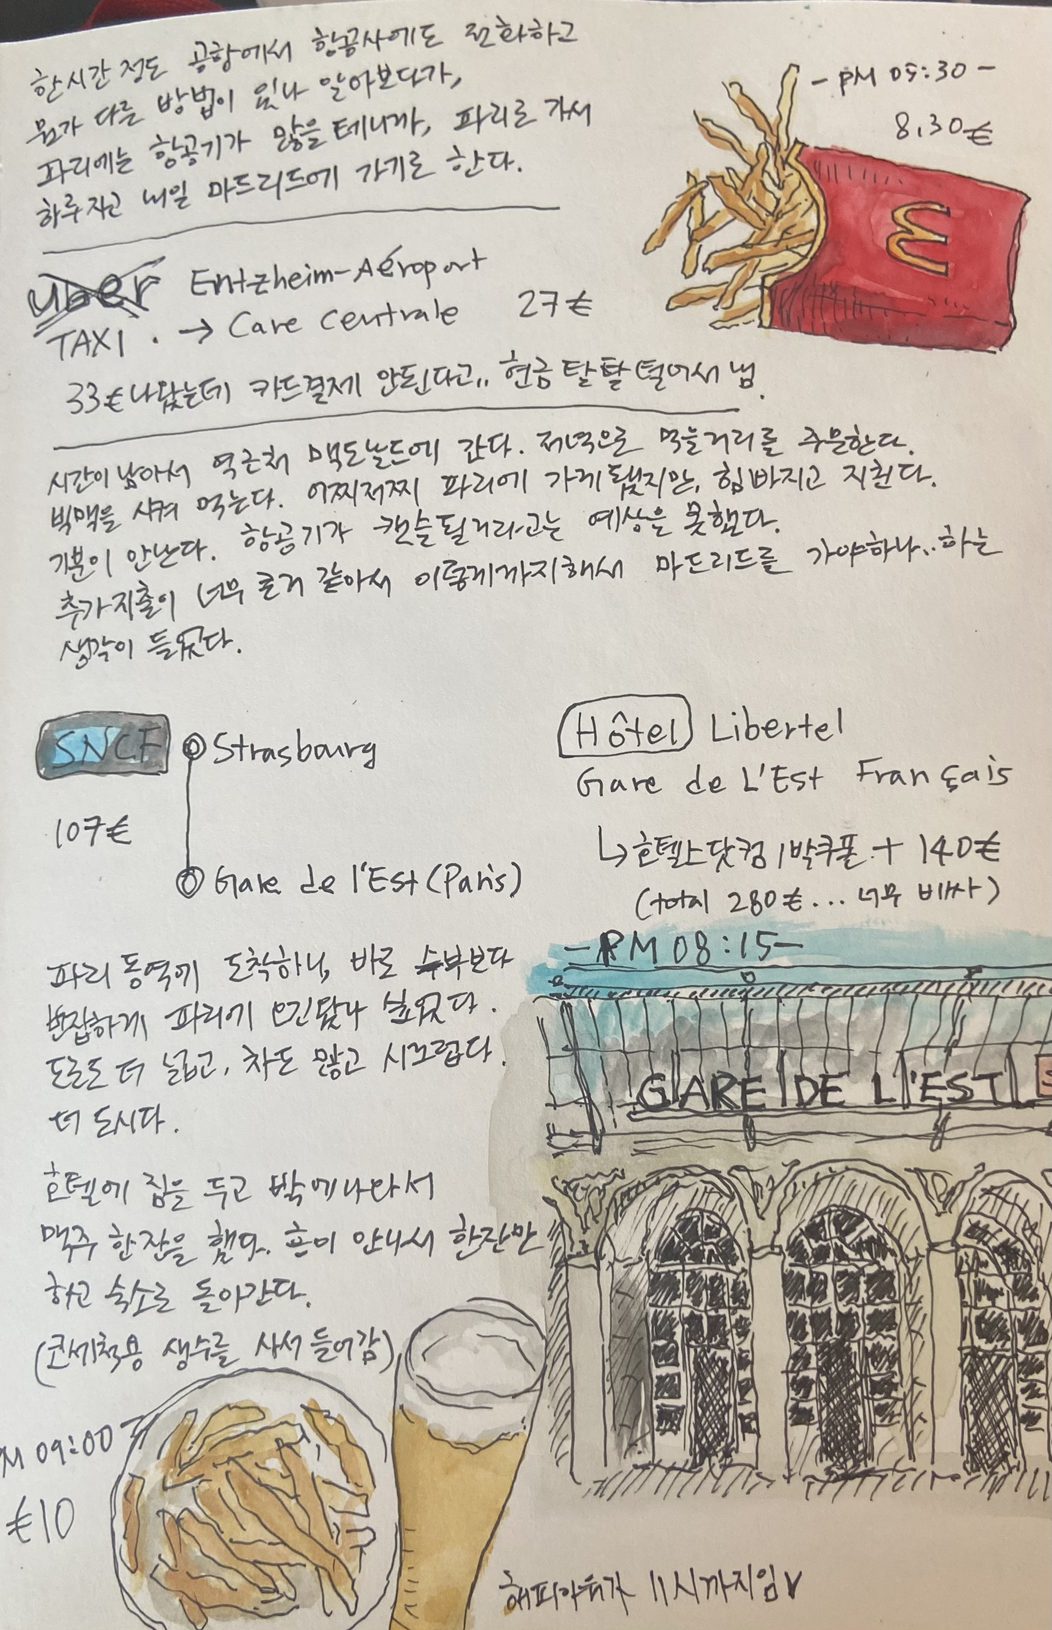 한시간 정도 공항에서 항공사에도 전화하고
뭔가 다른 방법이 있나 알아보다가,
파리에는 항공기가 많을테니까, 파리로 가서
하루자고 내일 마드리드에 가기로 한다.
- PM 05:30 -
8.30€
uber Entzheim-Aéroport
TAXI. → Care centrale 27€
33€나왔는데 카드결제 안된다고.. 현금 탈탈 털어서 냄.
시간이 남아서 역근처 맥도날드에 간다. 저녁으로 먹을거리를 주문한다.
빅맥을 시켜 먹는다. 어찌저찌 파리에 가게됐지만, 힘빠지고 지친다.
기분이 안난다. 항공기가 캔슬될거라고는 예상을 못했다.
추가지출이 너무 큰거 같아서 이렇게까지해서 마드리드를 가야하나..하는
생각이 들었다.
SNCF Strasbourg
107€
Gare de l'Est (Paris)
Hôtel Libertel
Gare de L'Est Français
↳호텔스닷컴 1박쿠폰 + 140€
(total 280€... 너무 비싸)
- PM 08:15 -
파리 동역에 도착하니, 바로
번잡하게 파리에 싶었다.
도로도 더 넓고, 차도 많고 시끄럽다.
더 도시다.
GARE DE L'EST S
호텔에 짐을 두고 밖에나와서
맥주 한잔을 했다. 흥이 안나서 한잔만
하고 숙소로 돌아간다.
(코세척용 생수를 사서 들어감)
M 09:00
€10
해피아워가 11시까지임